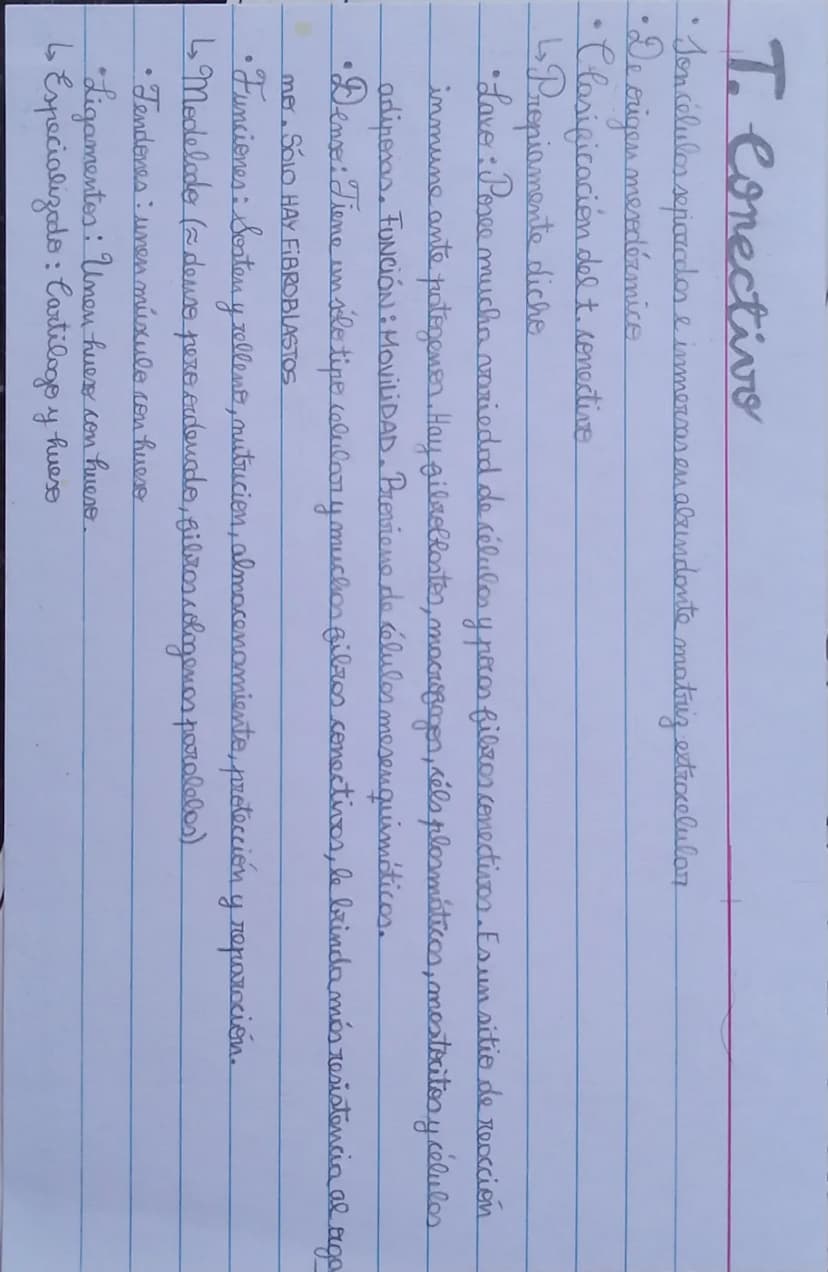 T. Conectivo
• Son células separadas e inmersas en abundante matriz extracelular
• De origen mesodérmico
• Clasificación del t. conectivo
↳ Propiamente dicho
• Laxo: Posee mucha variedad de células y pocas fibras conectivas. Es un sitio de reacción
inmune ante patógenos. Hay fibroblastos, macrófagos, céls plasmáticas, mastocitos y células
adiposas. FUNCIÓN: MOVILIDAD. Proviene de células mesenquimáticas.
• Denso: Tiene un sólo tipo celular y muchas fibras conectivas, le brinda más resistencia al orga
no. SÓLO HAY FIBROBLASTOS
• Funciones: Sostén y relleno, nutrición, almacenamiento, protección y reparación.
↳ Modelado (≈ denso pero ordenado, fibras colágenas paralelas)
• Tendones: unen músculo con hueso
• Ligamentos: Unen hueso con hueso.
↳ Especializado: Cartílago y hueso